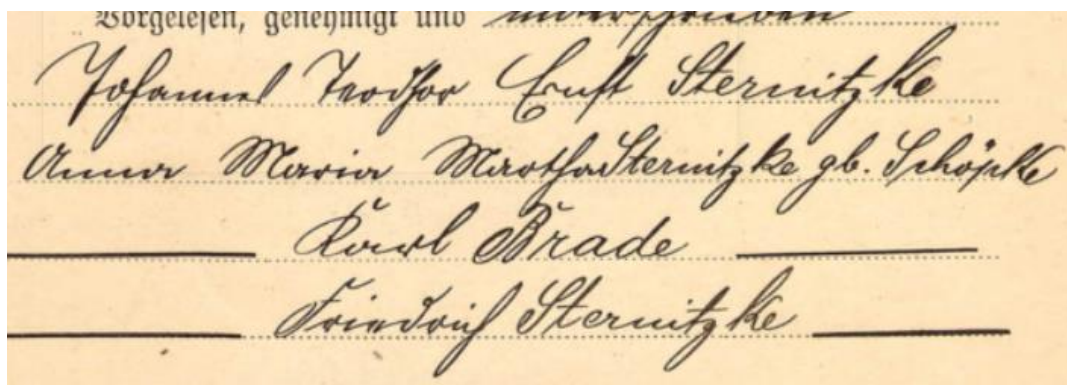 Vorgelesen, genehmigt und unterschrieben
Johannes Teodhor Ernst Sternitzke
Anna Maria Martha Sternitzke gb. Schöpke
Karl Brade
Friedrich Sternitzke